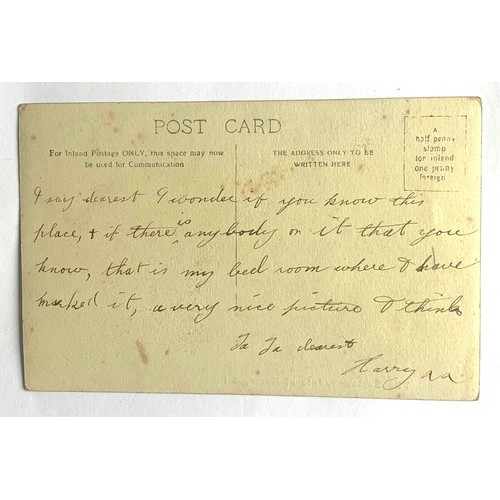 POST CARD
For Inland Postage ONLY, this space may now
be used for Communication
THE ADDRESS ONLY TO BE
WRITTEN HERE
A
half penny
stamp
for inland
one penny
foreign
I say dearest I wonder if you know this
place, & if there is anybody on it that you
know, that is my bed room where I have
marked it, a very nice picture I think
Ta Ta dearest
Harry